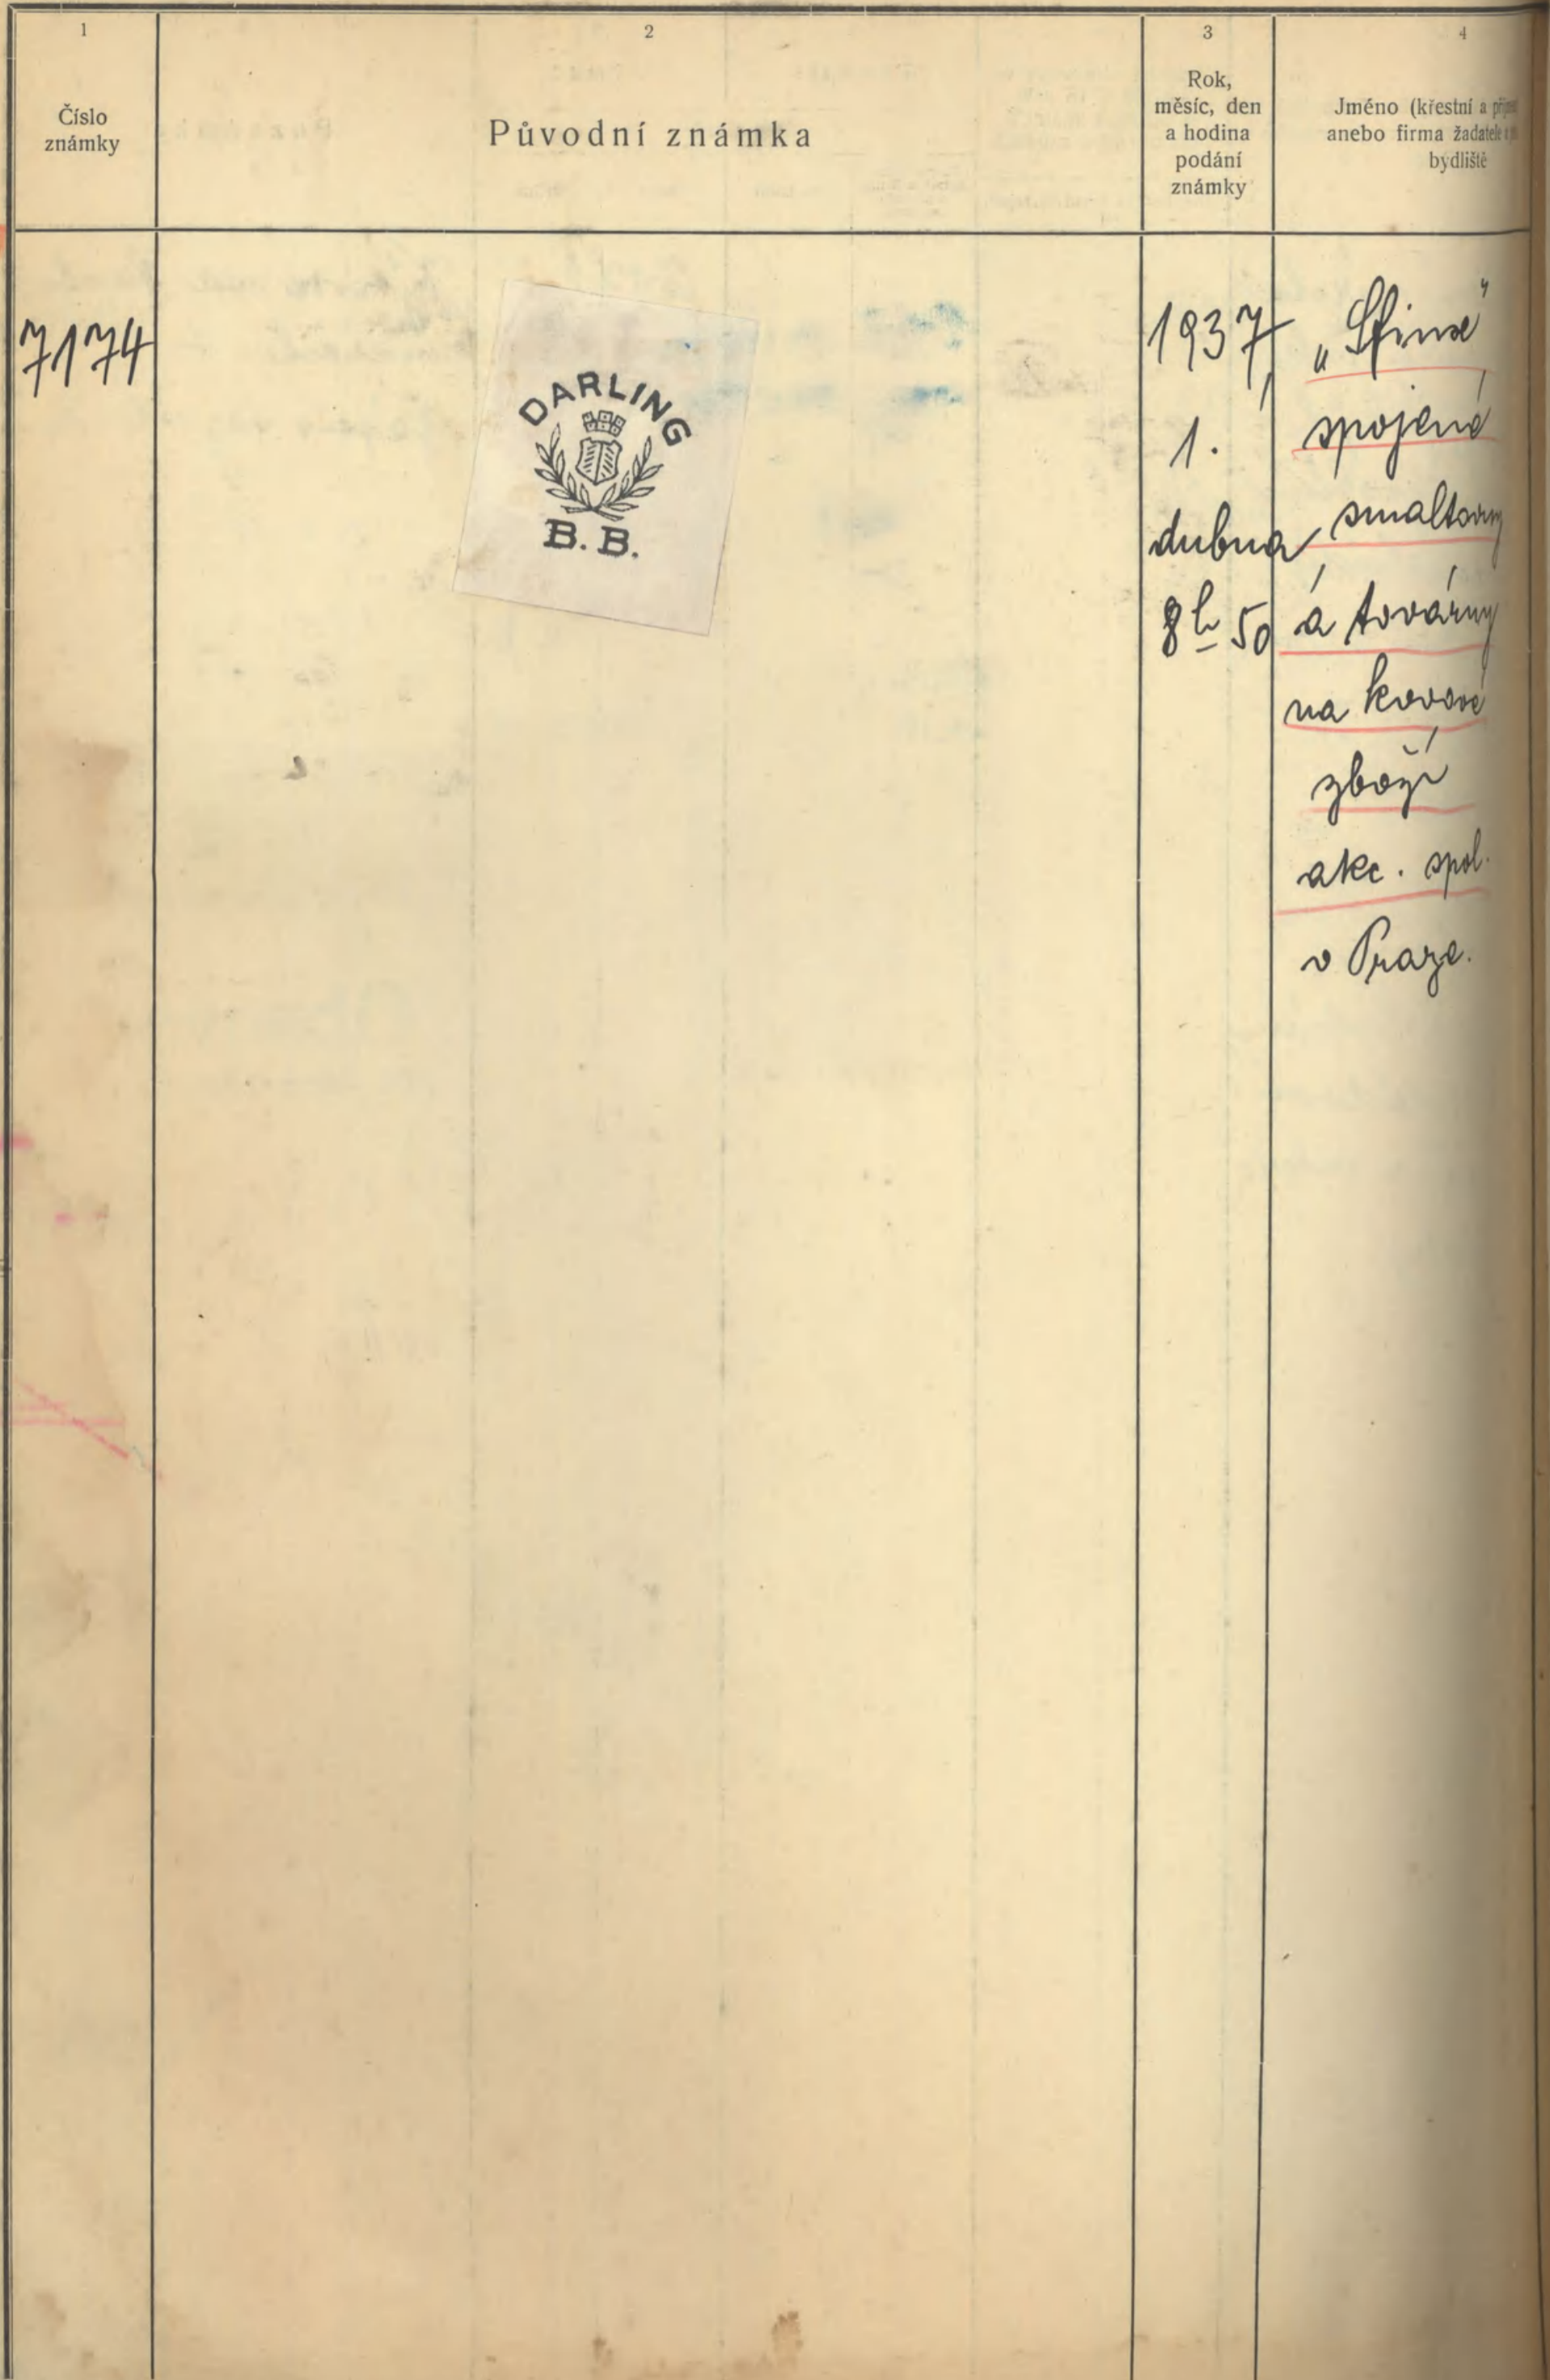 1
Číslo
známky
2
Původní známka
3
Rok,
měsíc, den
a hodina
podání
známky
4
Jméno (křestní a
anebo firma žadatele
bydliště
7174
DARLING
B. B.
1937,
1.
dubna
8h 50
„Sfinx"
spojené
smaltovny
a továrny
na kovové
zboží
akc. spol.
v Praze.